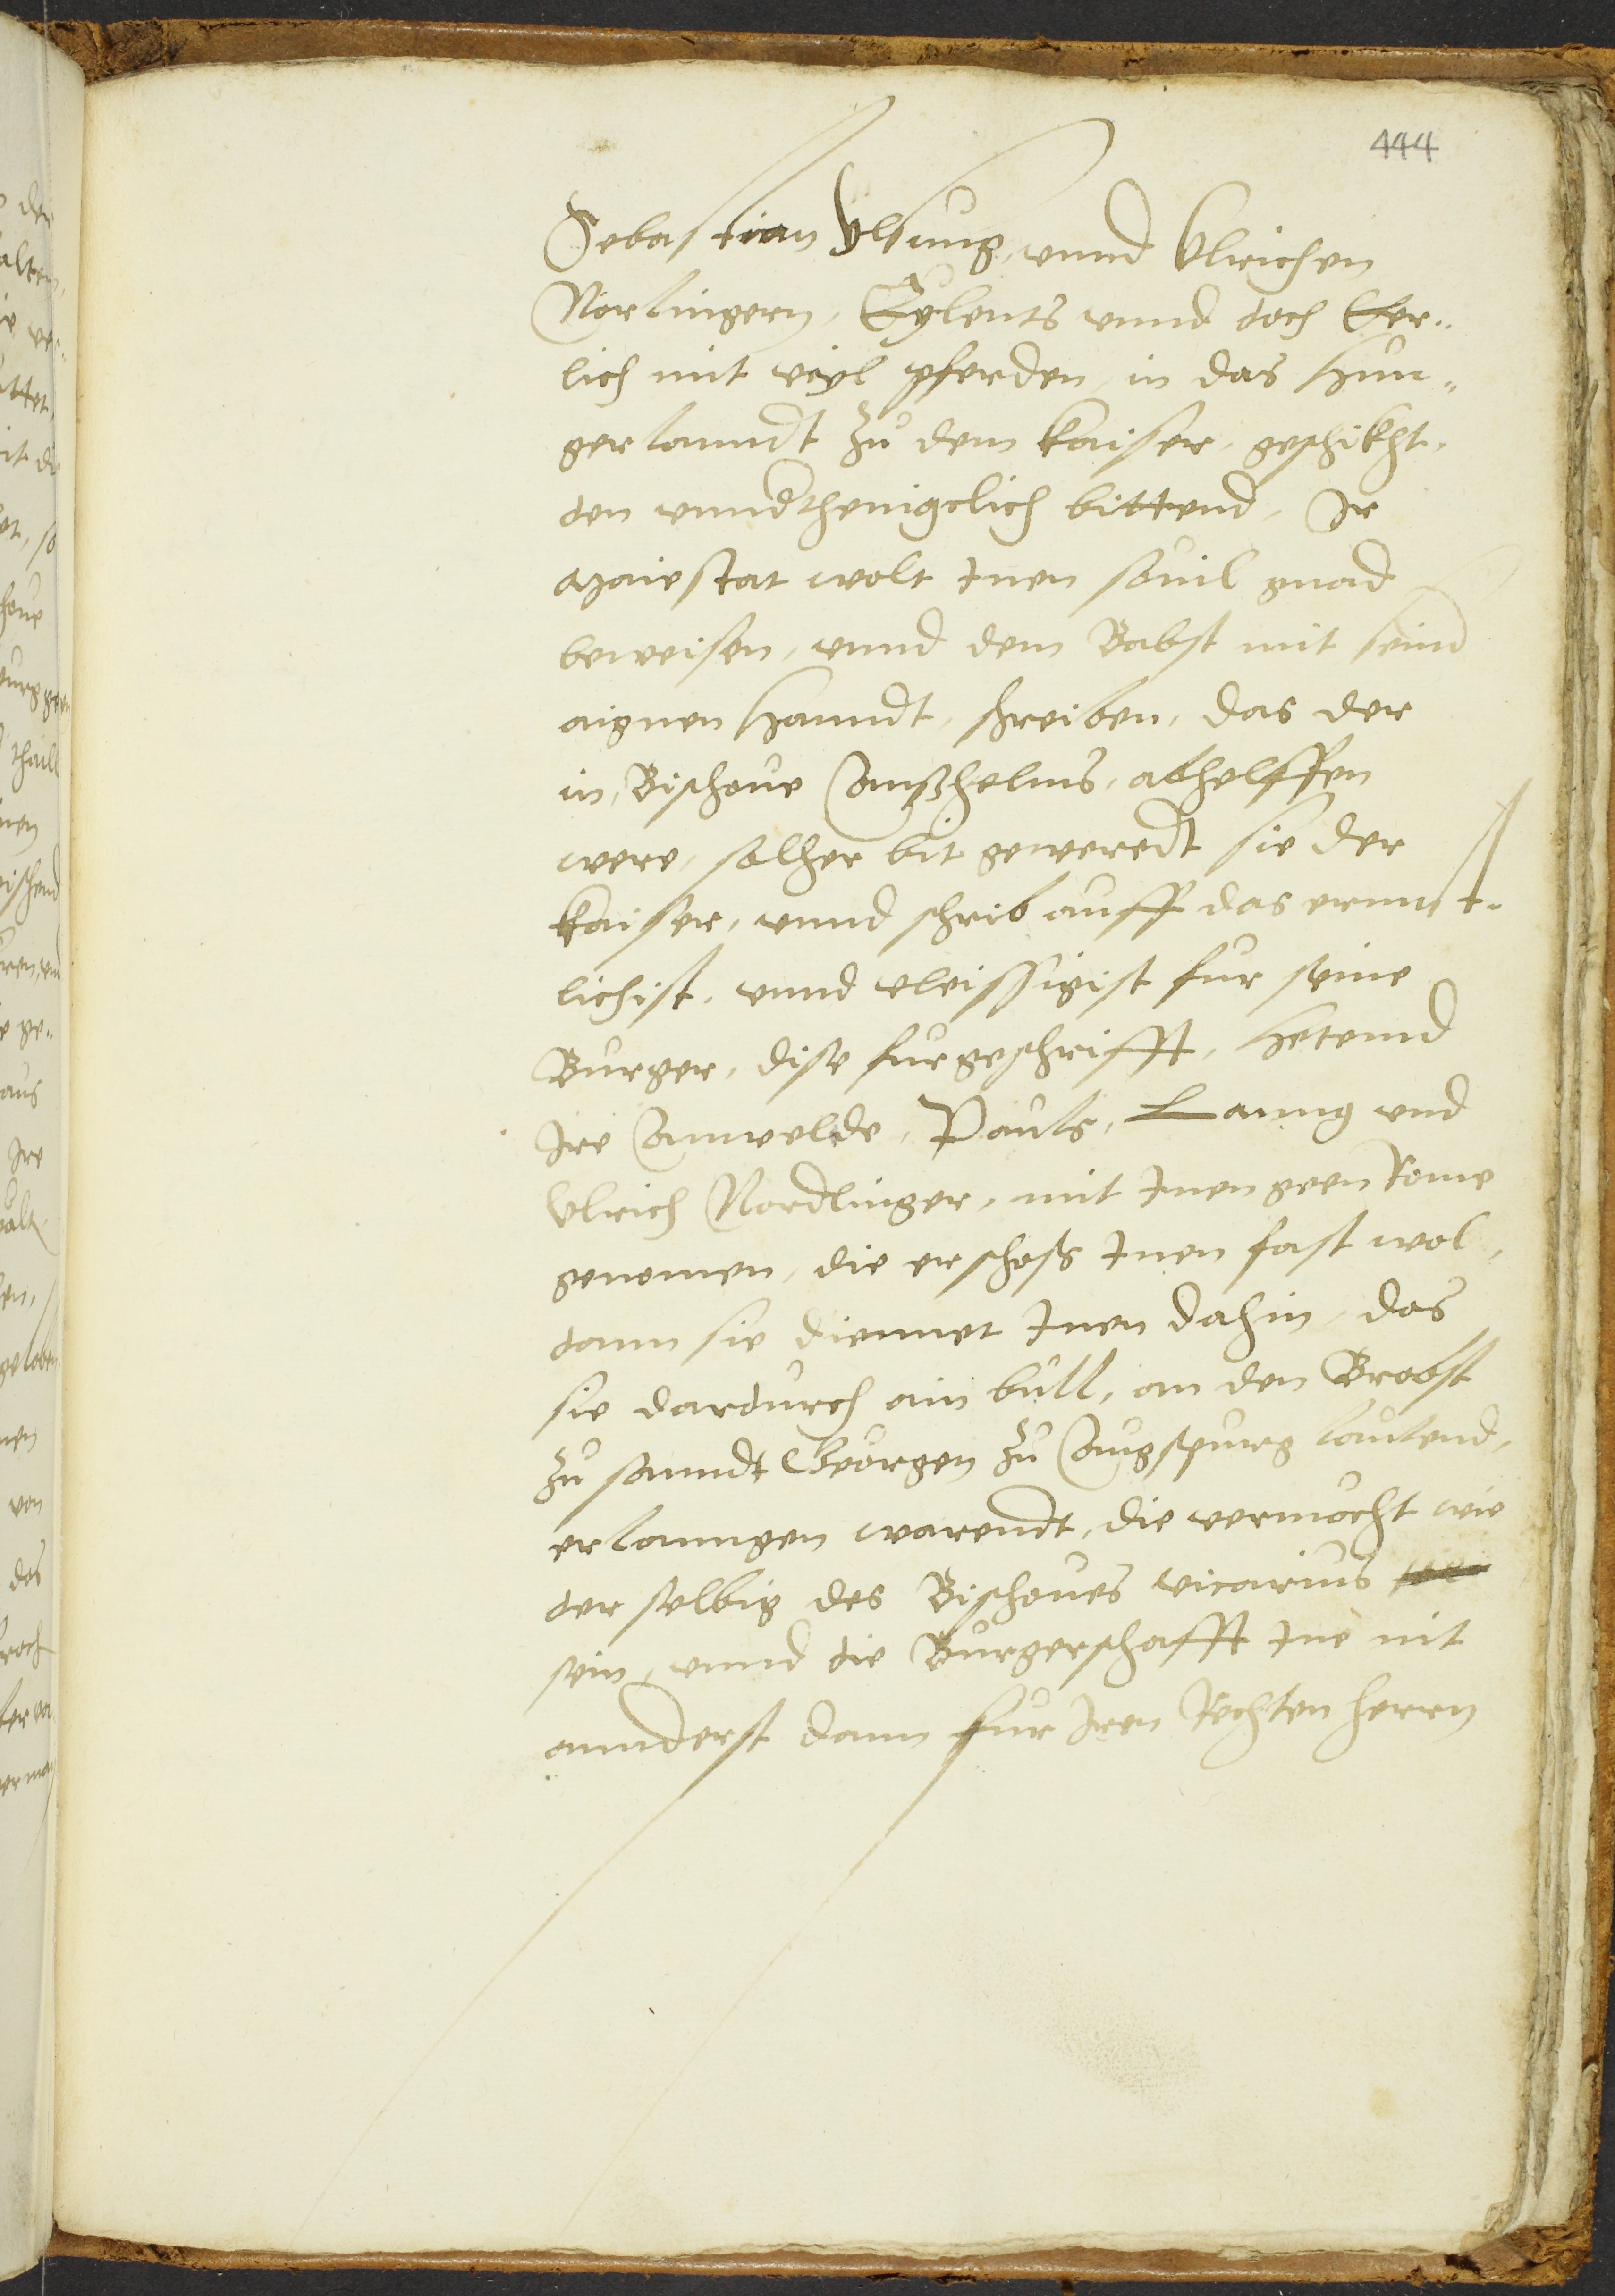 444
Sebastian Ylsung, vnnd Vlrichen
Norlingern, Eylents vnnd doch Eer„
lich mit viyl pferden, in das Hun„
gerlanndt zu dem kaiser, geschikht,
den vnndthenigclich bittend, Ir
Maiestat wolt Inen souil gnad
beweisen, vnnd dem Babst mit seind
aignen Hanndt, schreiben, das der
in, Bischoue Annßhelms, abhelffen
were, solher bit geweredt sie der
kaiser, vnnd schrib auff das ernnst„
lichist, vnnd vleissigist fur seine
Burger, dise furgeschrifft, hetennd
Ire Annwelde, Pauls, Lanng vnd
Vlrich Nordlinger, mit Inen geen Rome
genomen, die erschoss Inen fast wol,
dann sie diennet Inen dahin, das
sie dardurch ain bull, an den Brobst
zu sanndt Georgen zu Augspurg lautend,
erlanngen warendt, die vermocht wie
der selbig des Bischoues vicarius
sein, vnnd die Burgerschafft Ine nit
annderst dann fur Iren Rechten herrn